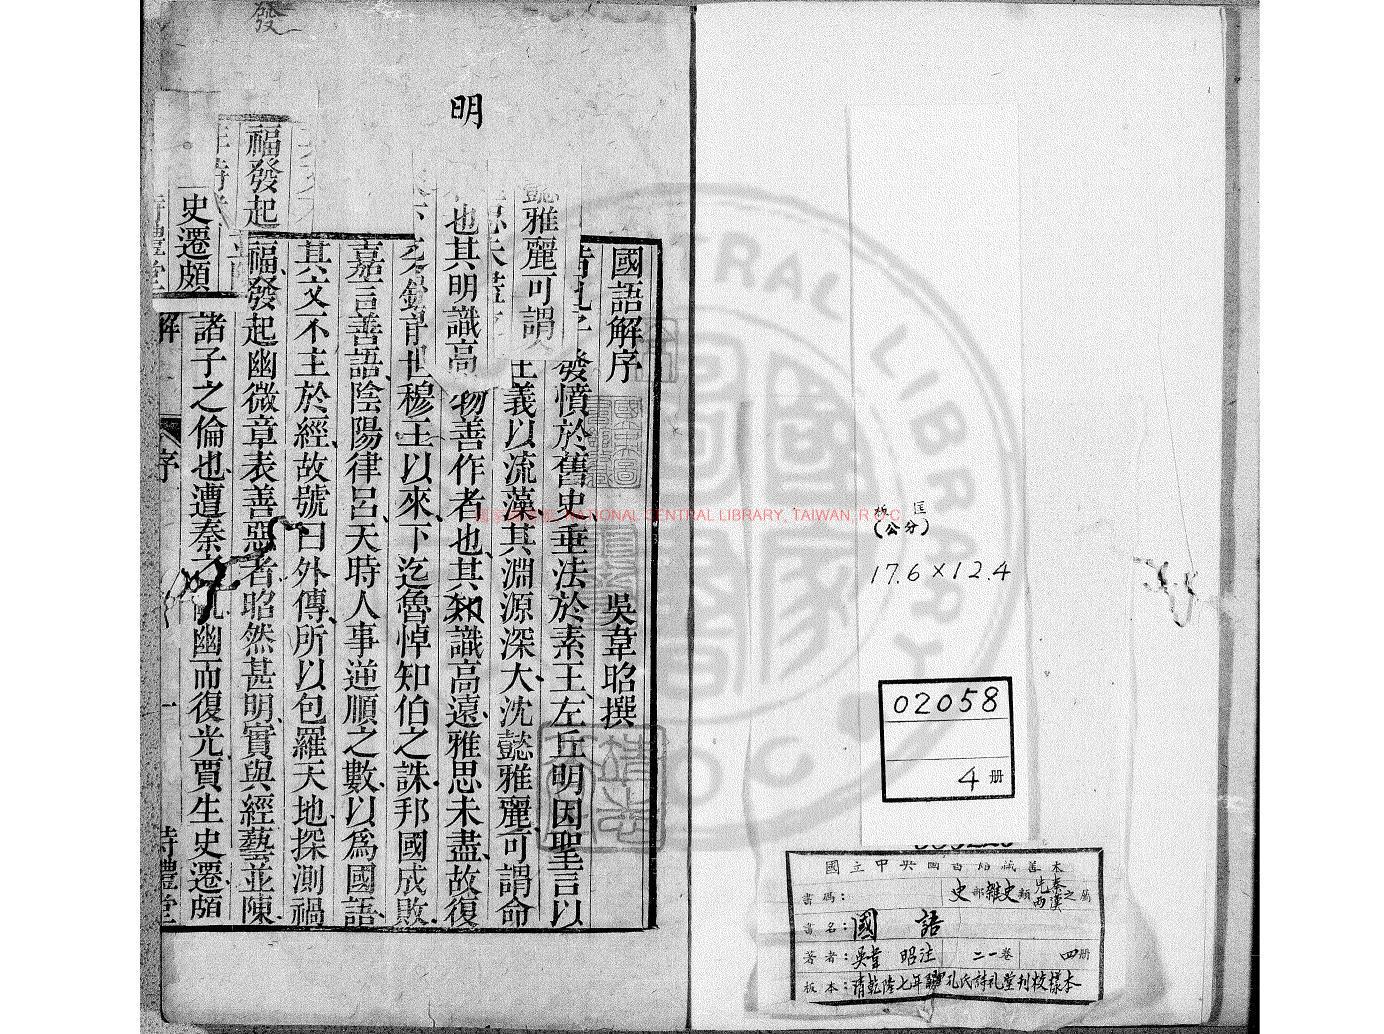 板匡
(公分)
17.6×12.4
02058
4 册
國立中央圖書館藏善本
書碼：
史部雜史類先秦西漢之屬
書名：國語
著者：吳韋昭注
二一卷
四册
板本：清乾隆七年孔氏詩禮堂刊校樣本
發
明
國語解序
吳韋昭撰
發憤於舊史垂法於素王左丘明因聖言以
義以流藻其淵源深大沈懿雅麗可謂命
懿雅麗可謂
物善作者也其知識高遠雅思未盡故復
也其明識高
世穆王以來下迄魯悼知伯之誅邦國成敗
嘉言善語陰陽律呂天時人事逆順之數以爲國語
其文不主於經故號曰外傳所以包羅天地探測禍
福發起幽微章表善惡者昭然甚明實與經藝並陳
福發起
諸子之倫也遭秦之亂幽而復光賈生史遷頗
史遷頗
解
序
一
詩禮堂
NATIONAL CENTRAL LIBRARY, TAIWAN, R.O.C